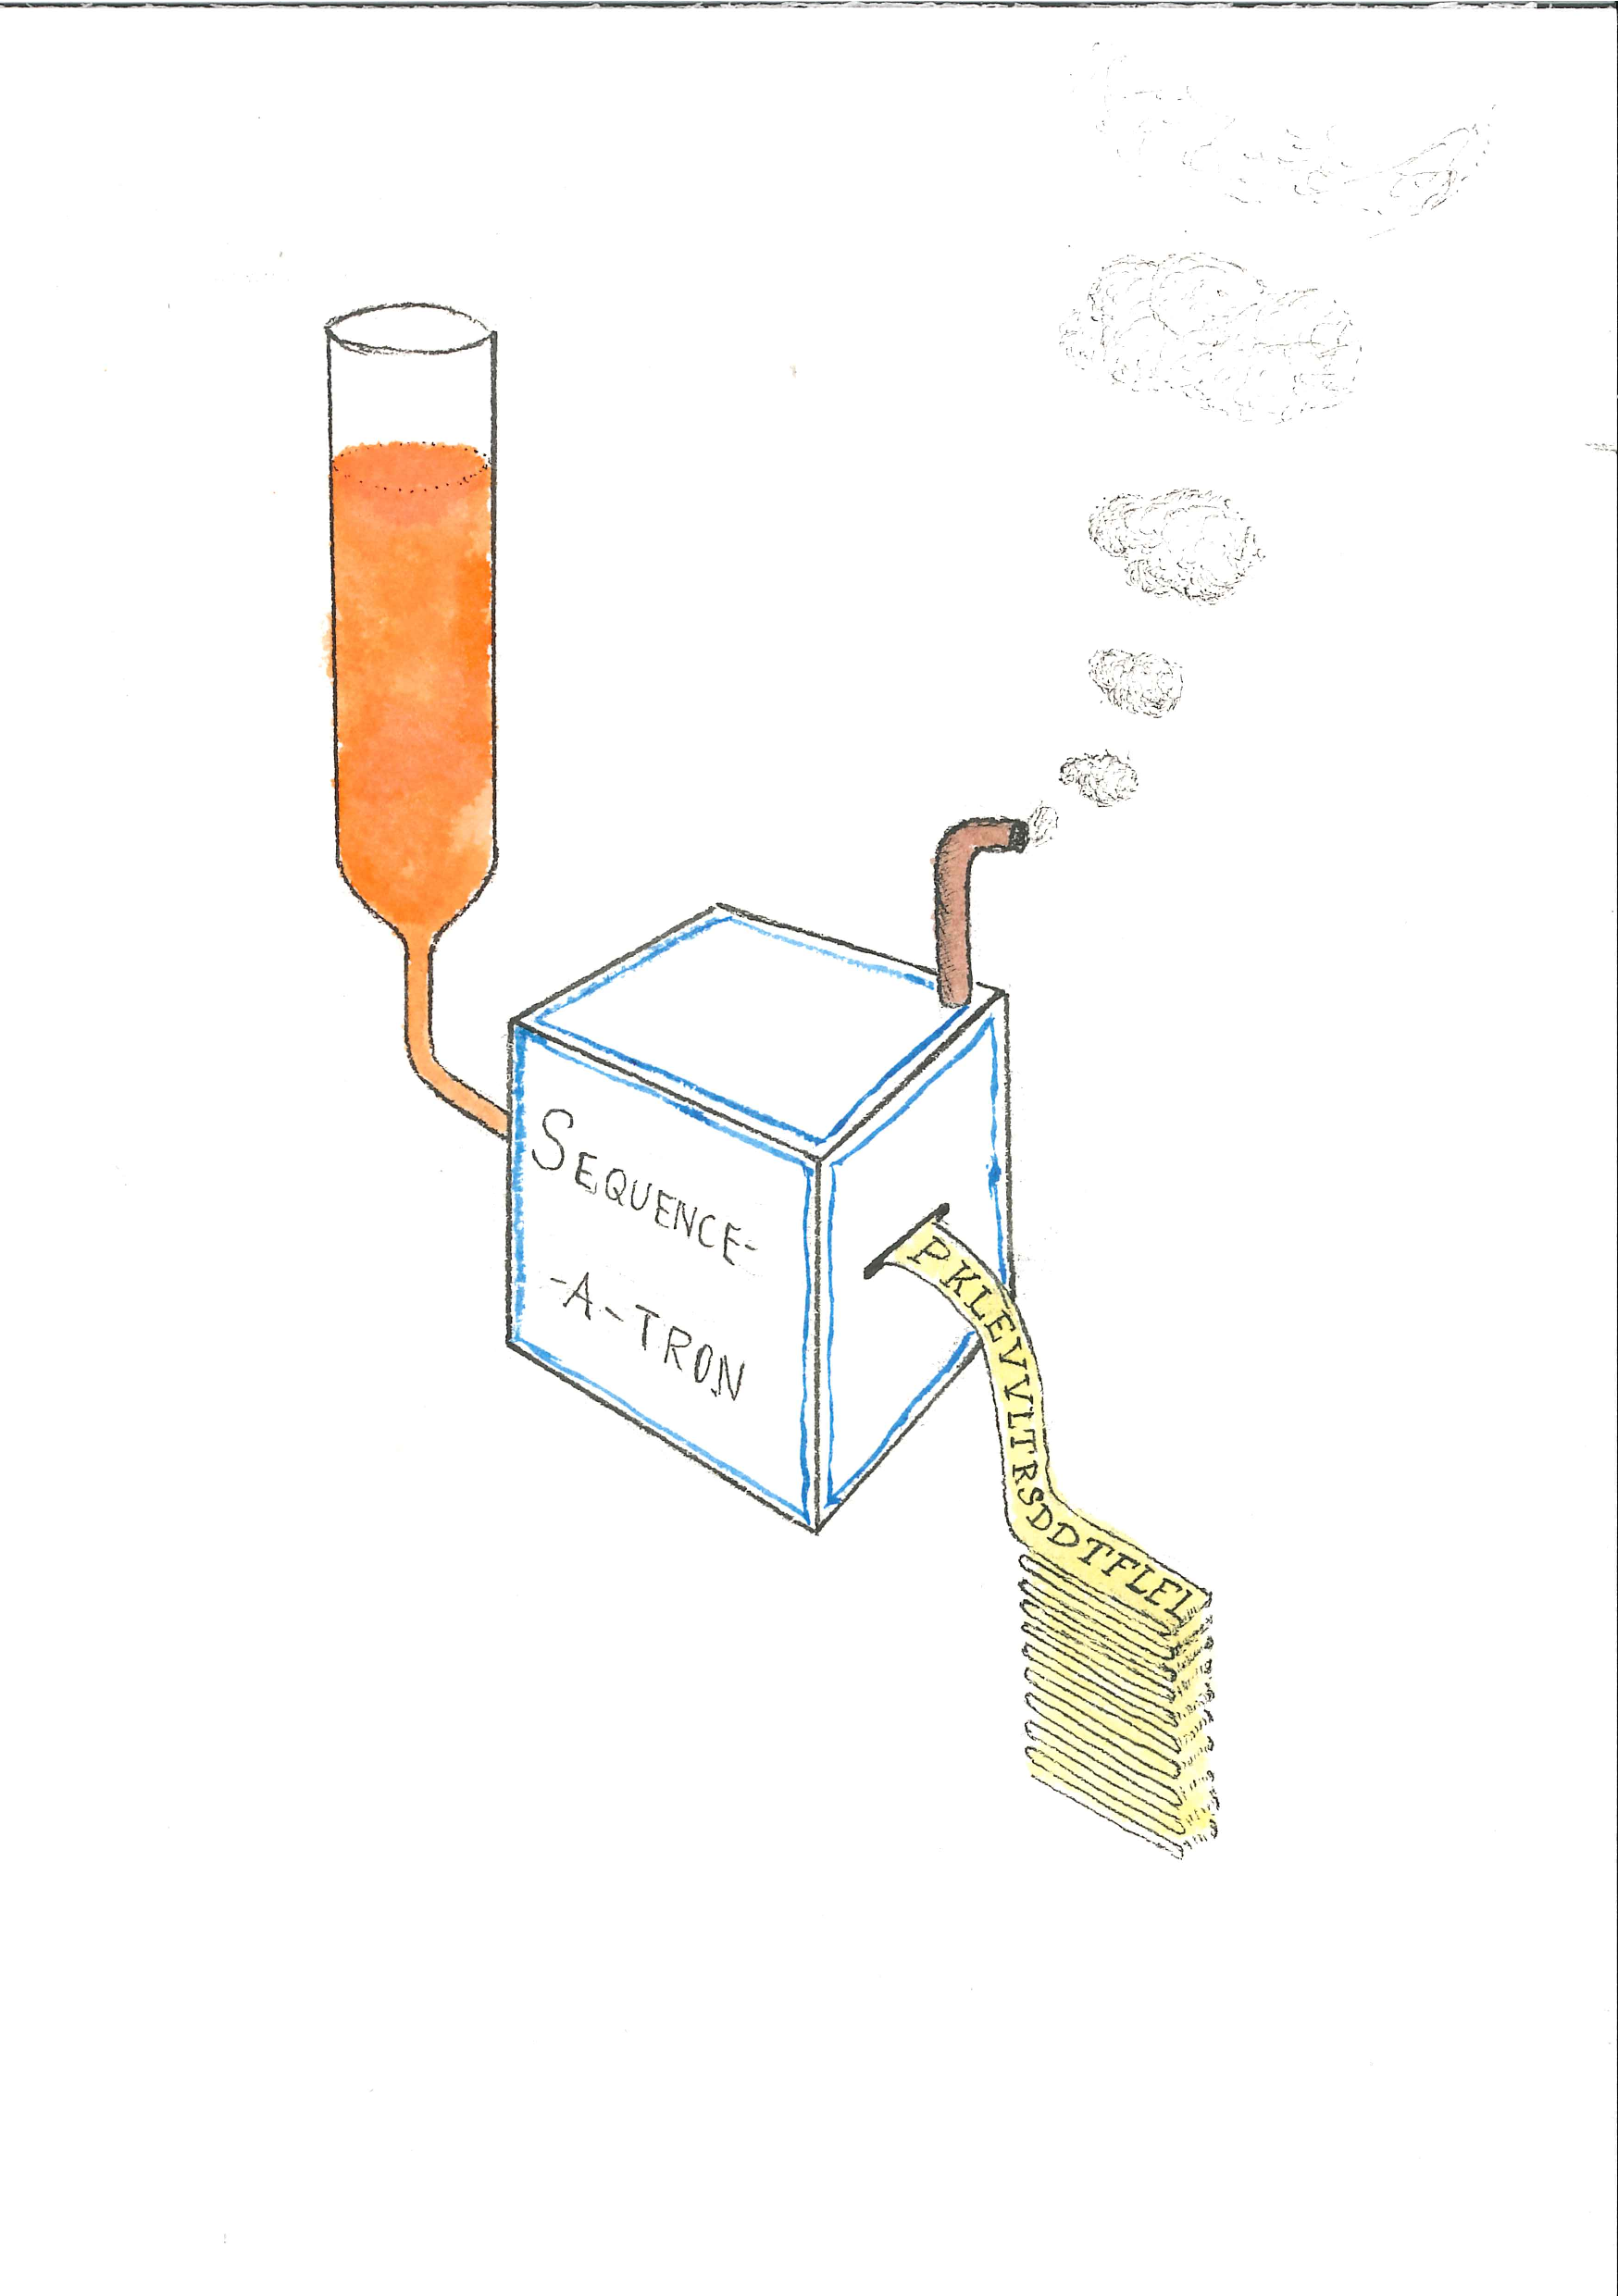 SEQUENCE-
-A-TRON
PKLEVVLTRSDDTFLEL